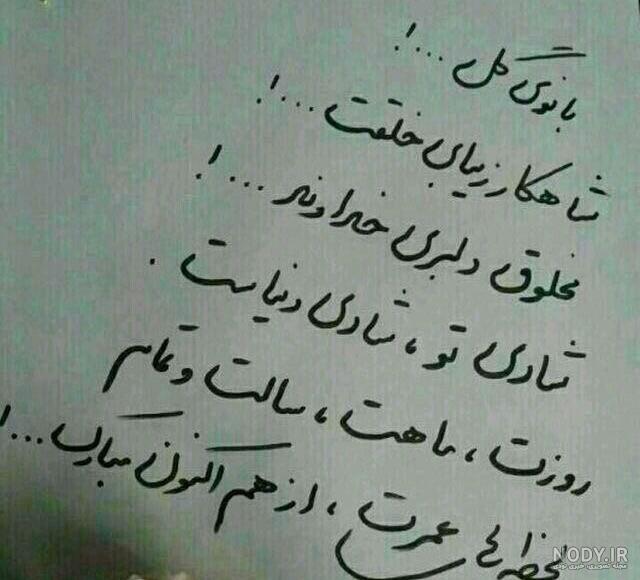 بانوی گل ...!
شاهکار زیبای خلقت ...!
مخلوق دلبری خداوند ...!
شادی تو ، شادی دنیاست .
روزت ، ماهت ، سالت و تمام
لحظه های عمرت ، از هم اکنون مبارک ...!
NODY.IR